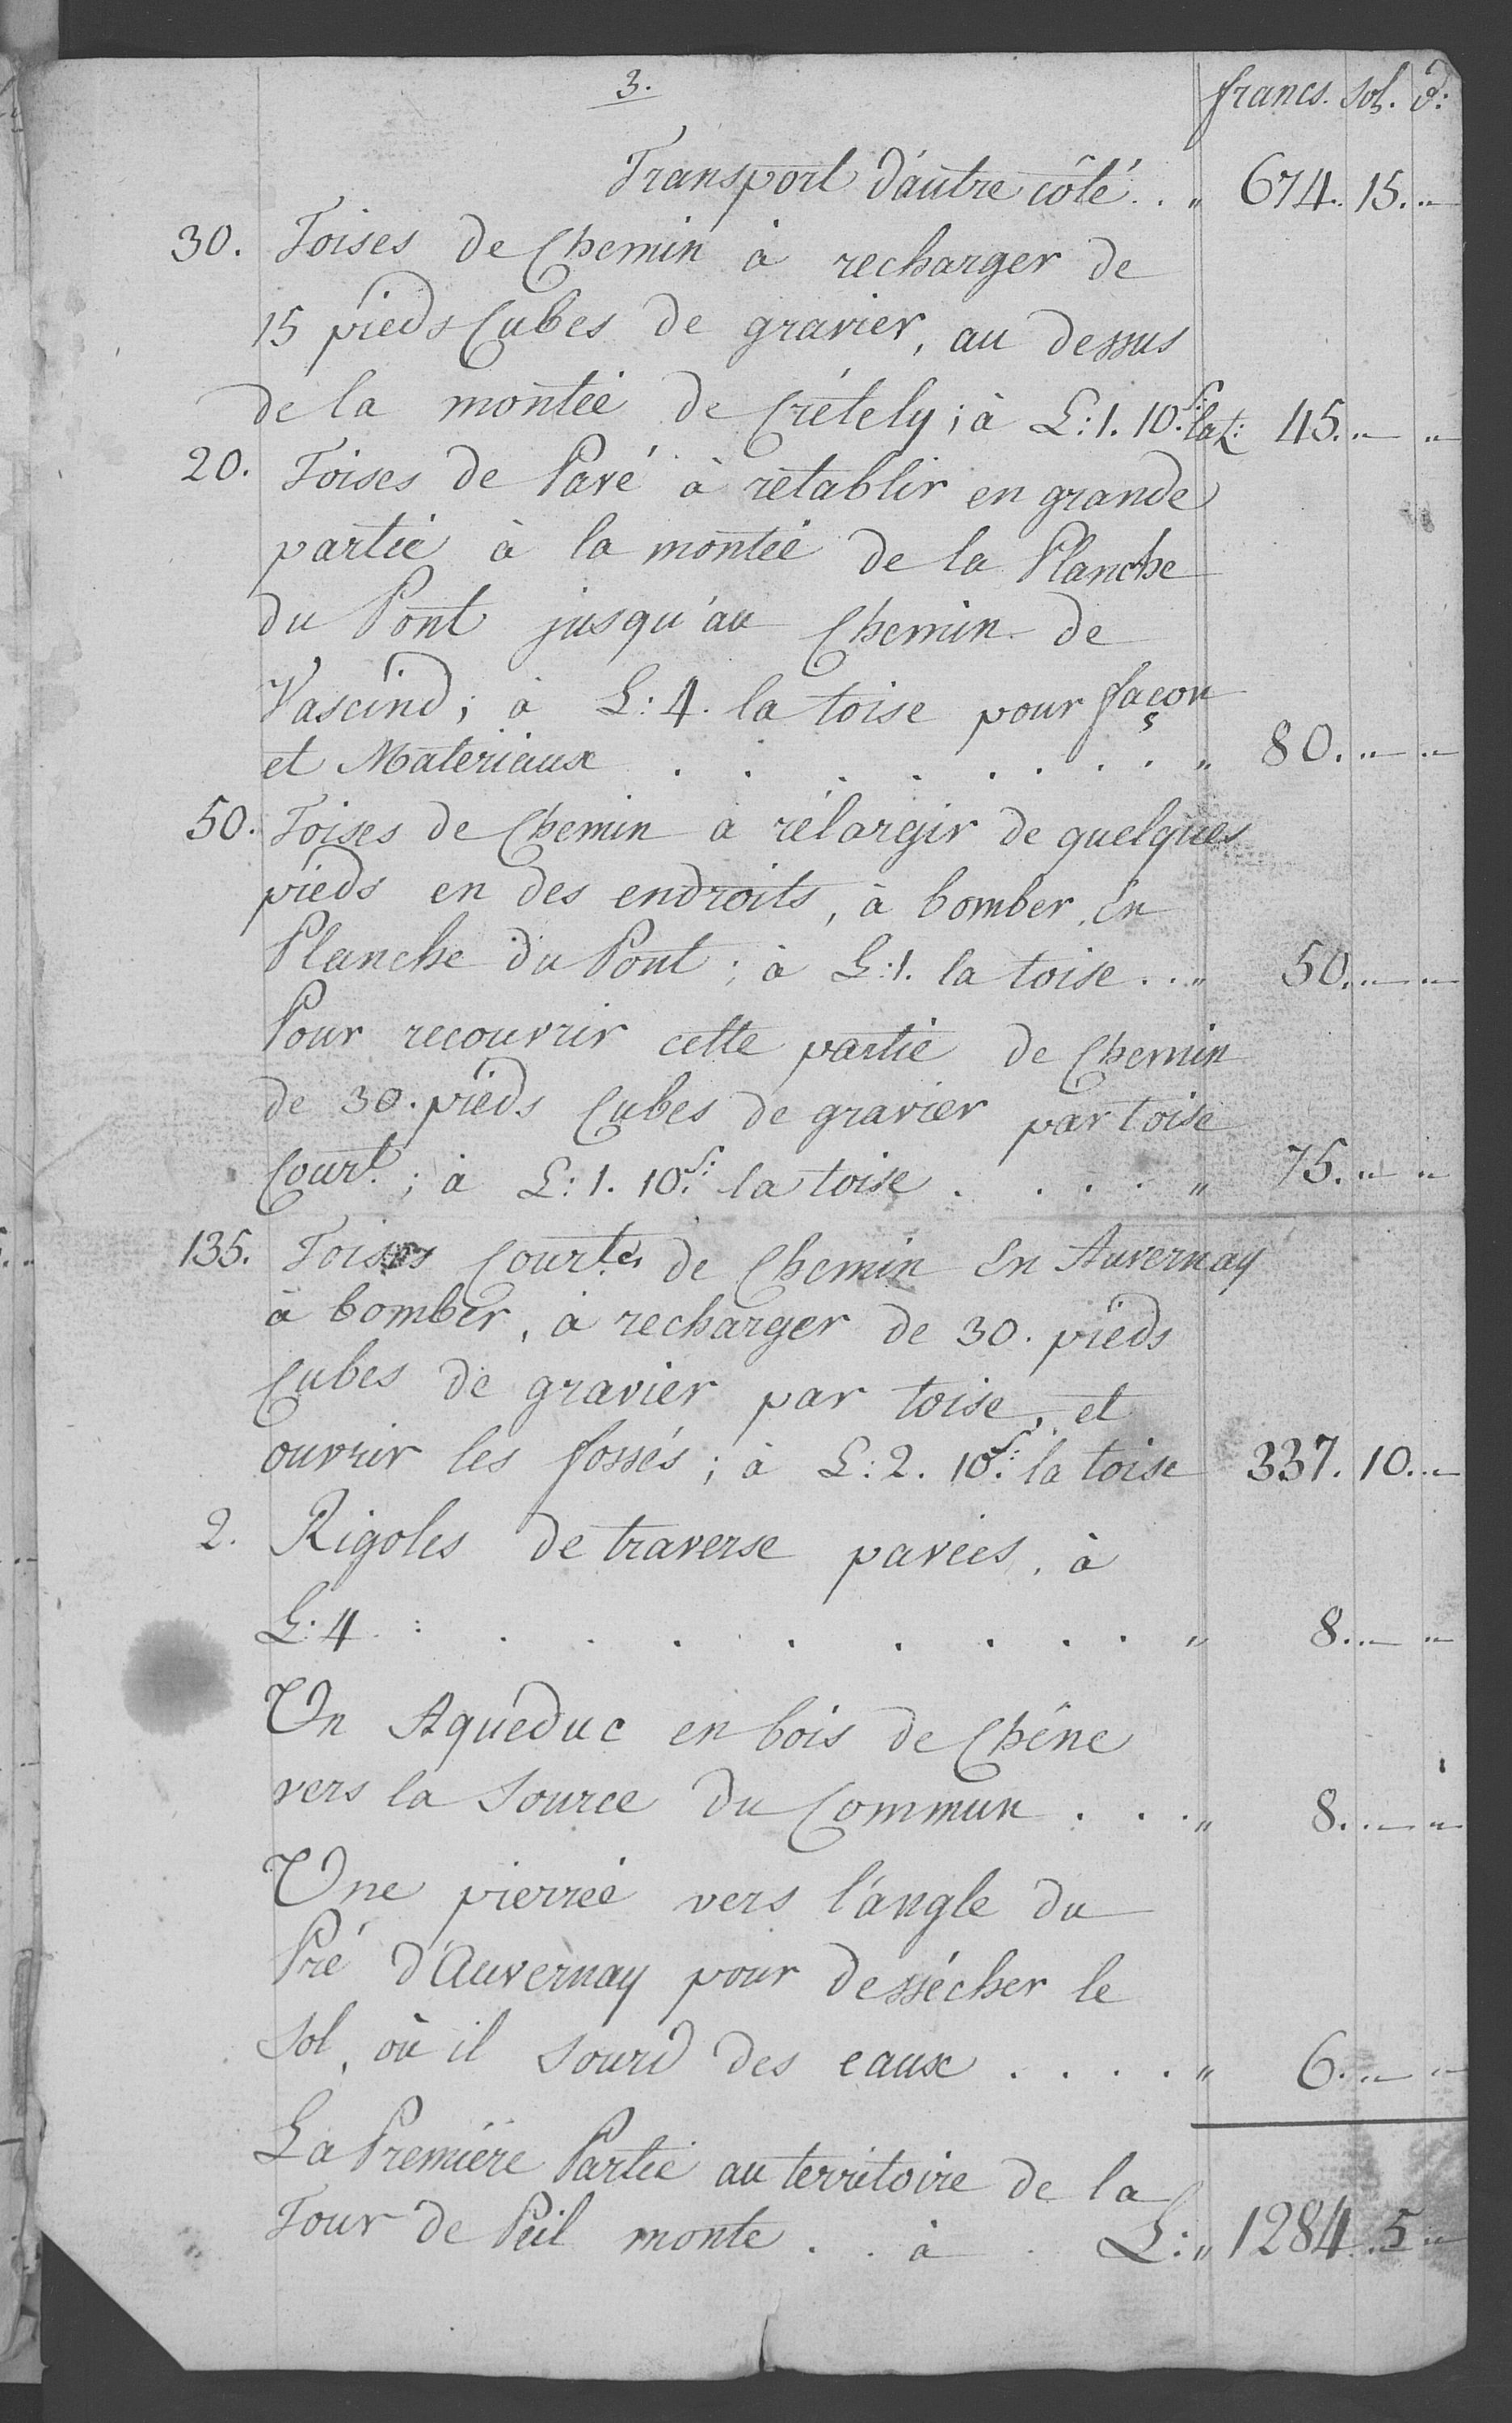 3.
francs. sol. d:
Transport d'autre côté . . " 674. 15. "
30. Toises de Chemin à recharger de
15 pieds Cubes de gravier, au dessus
de la montée de Crételly ; à L: 1. 10.s: la t: 45. " "
20. Toises de Pavé à rétablir en grande
partie à la montée de la Planche
du Pont jusqu'au Chemin de
Vascind ; à L: 4. la toise pour façon
et Materiaux . . . . . . . . " 80. " "
50. Toises de Chemin à rélargir de quelques
pieds en des endroits, à bomber, En
Planche du Pont ; à L: 1. la toise . . " 50. " "
Pour recouvrir cette partie de Chemin
de 30. pieds Cubes de gravier par toise
Court.e ; à L: 1. 10.s: la toise . . . . " 75. " "
135. Toises Courtes de Chemin En Auvernay
à bomber, à recharger de 30. pieds
Cubes de gravier par toise, et
ouvrir les fossés ; à L: 2. 10.s: la toise 337. 10. "
2. Rigoles de traverse pavées, à
L: 4. : . . . . . . . . " 8. " "
Un Aqueduc en bois de Chêne
vers la Source du Commun . . . " 8. " "
Une pierrée vers l'angle du
Pré d'Auvernay pour dessécher le
Sol, où il sourd des eaux . . . . " 6. " "
La Premiére Partie au territoire de la
Tour de Peil monte . . à . L: " 1284. 5 "